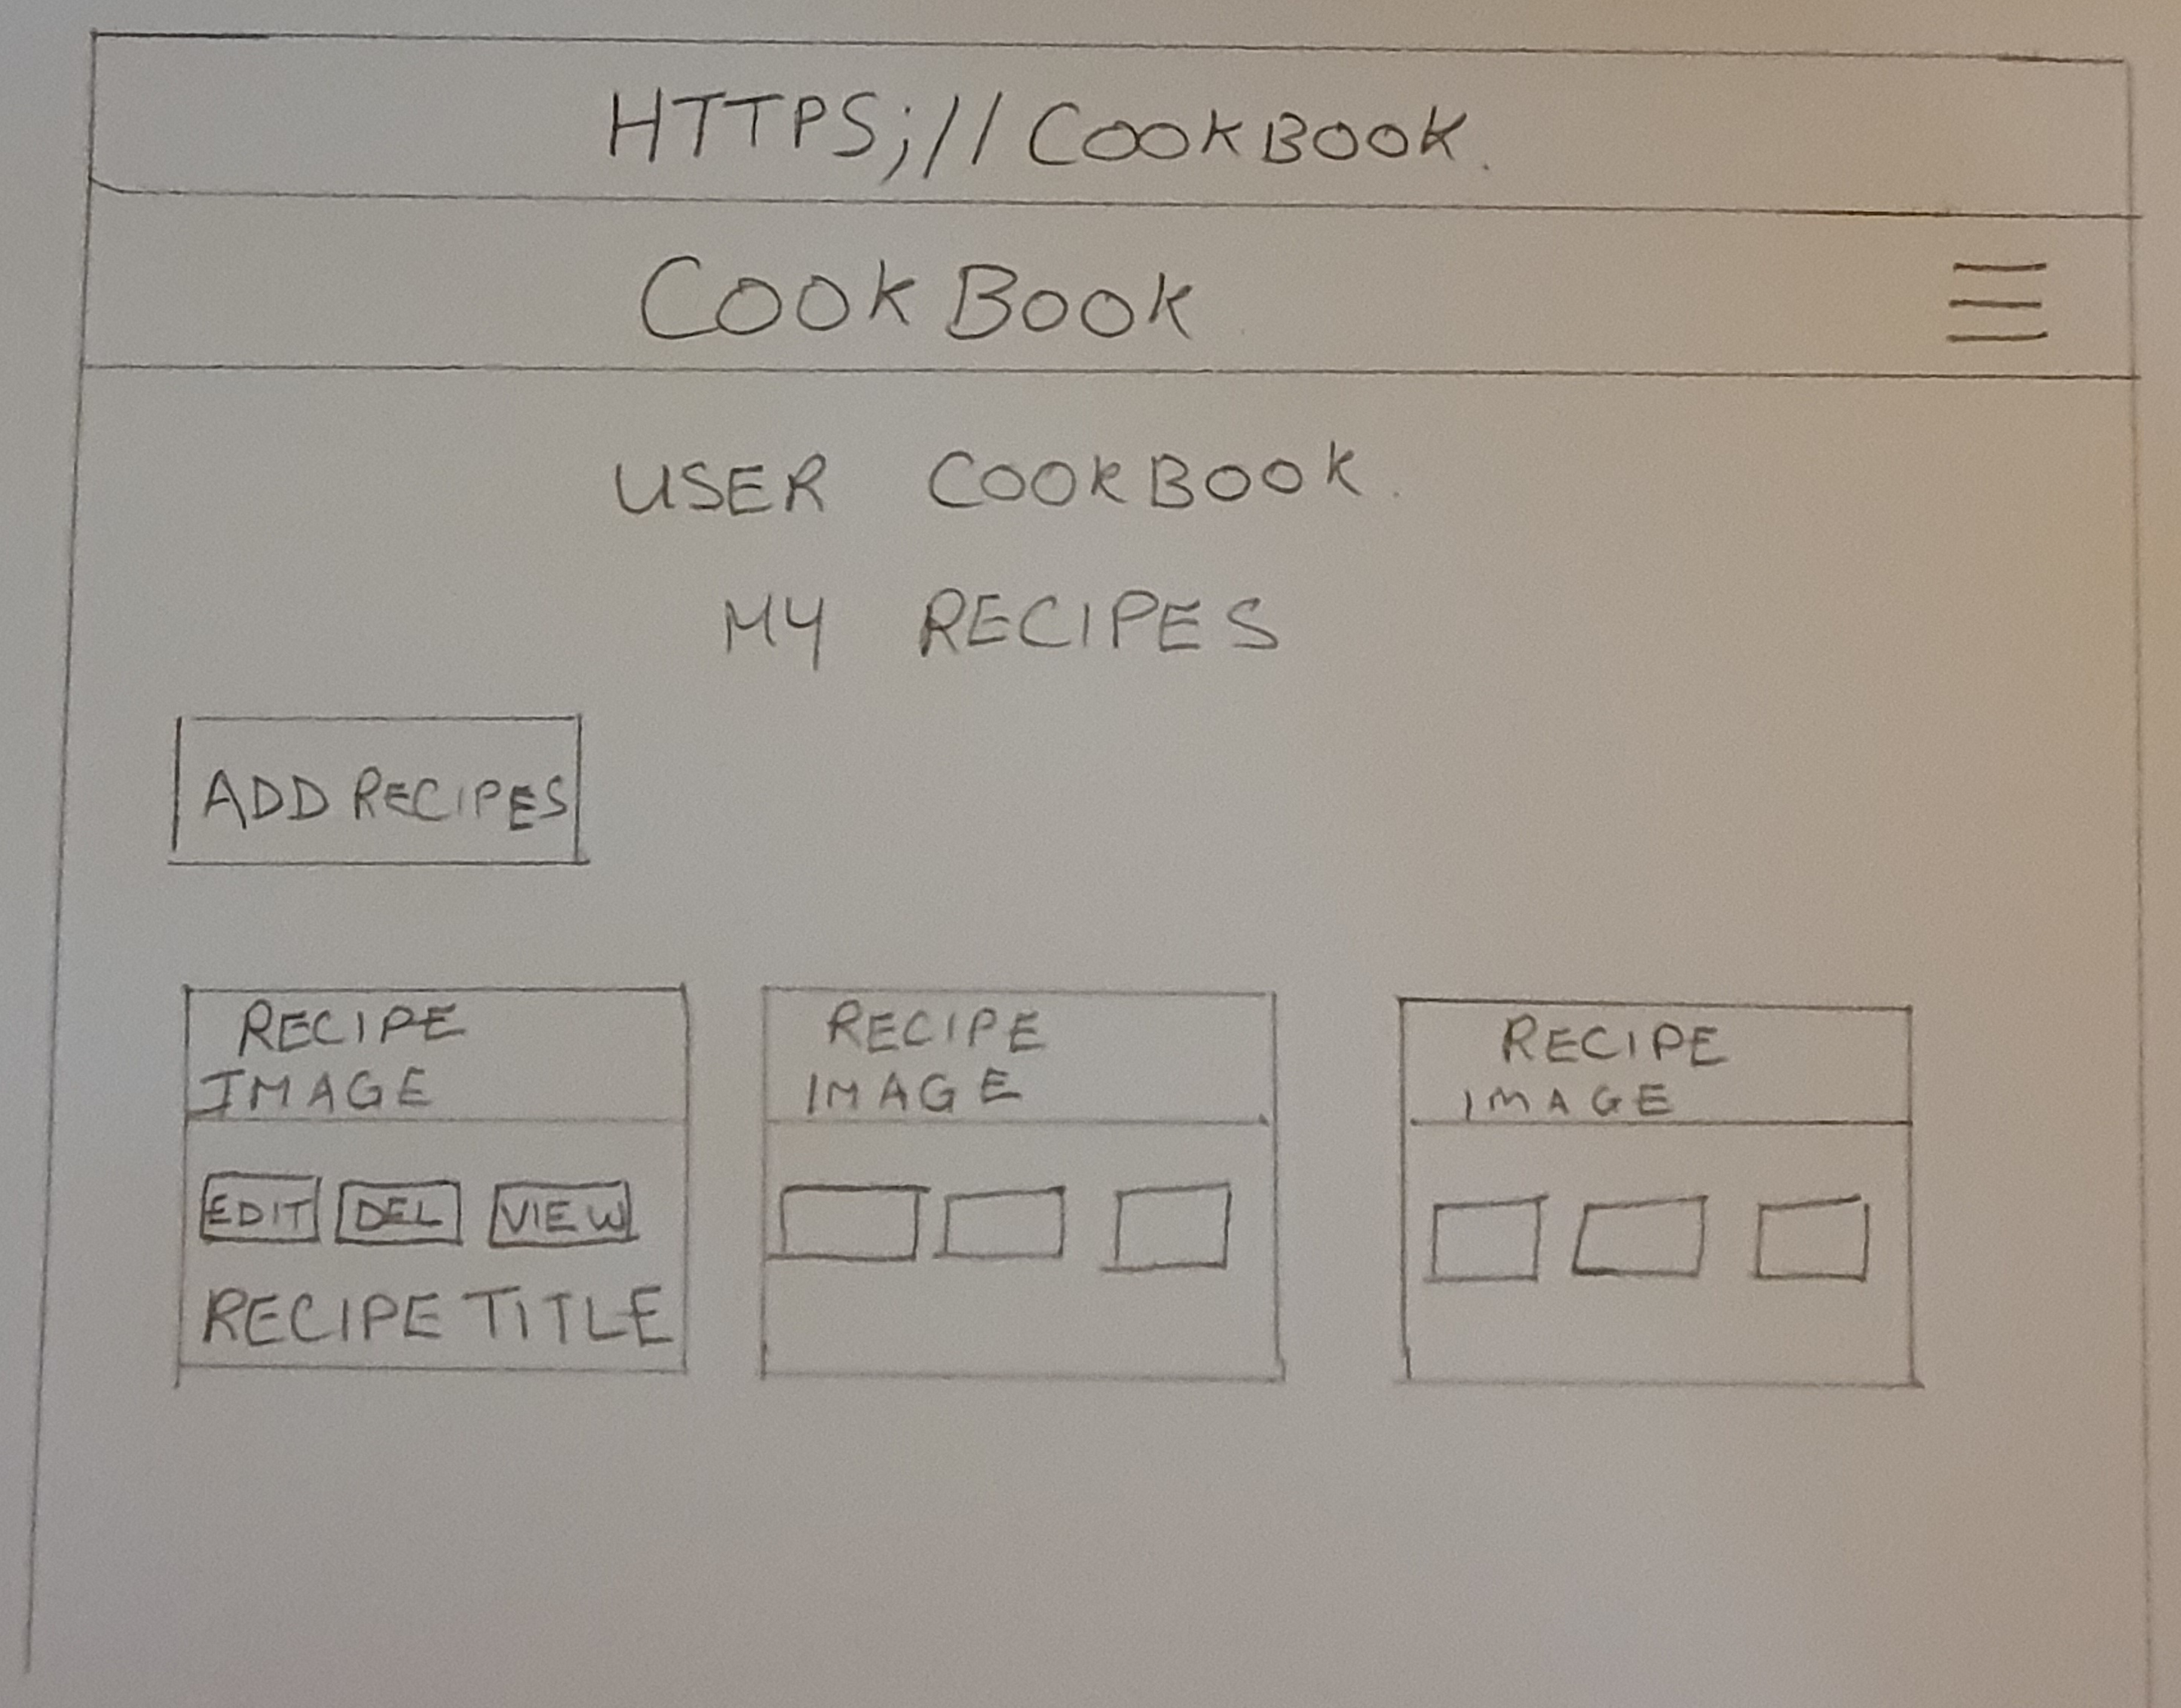 HTTPS;//COOKBOOK.
COOK BOOK
USER COOKBOOK.
MY RECIPES
ADD RECIPES
RECIPE
IMAGE
EDIT DEL VIEW
RECIPE TITLE
RECIPE
IMAGE
RECIPE
IMAGE